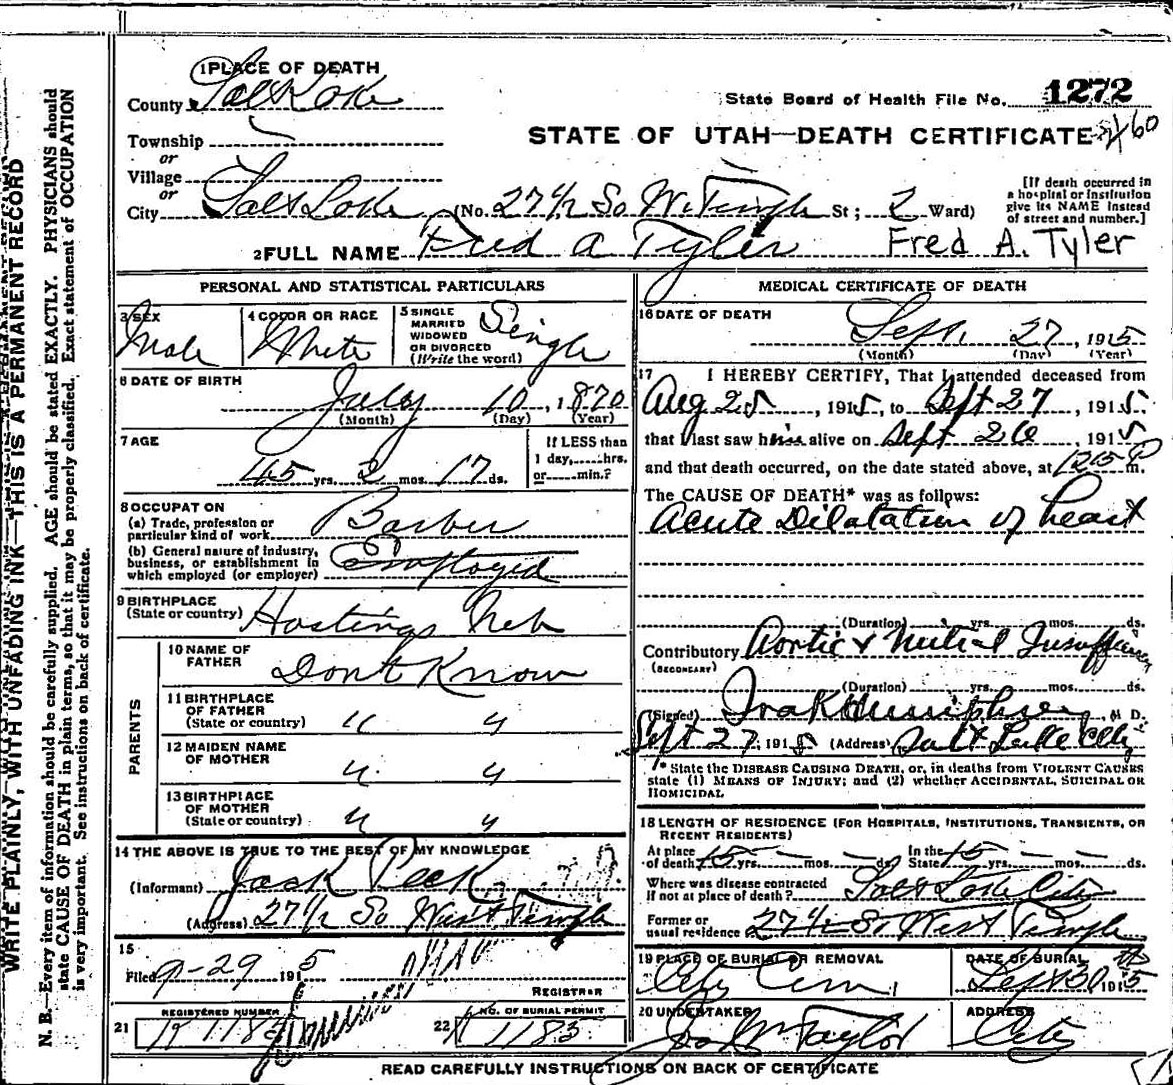 1 PLACE OF DEATH
County Salt Lake
State Board of Health File No. 1272
Township
or
STATE OF UTAH—DEATH CERTIFICATE 460
Village
or
City Salt Lake (No. 27 1/2 So W. Temple St; 2 Ward)
[If death occurred in
a hospital or institution
give its NAME instead
of street and number.]
2 FULL NAME Fred A Tyler Fred A. Tyler
PERSONAL AND STATISTICAL PARTICULARS
3 SEX Male
4 COLOR OR RACE White
5 SINGLE
MARRIED
WIDOWED
OR DIVORCED
(Write the word) Single
6 DATE OF BIRTH
July 10, 1870
(Month) (Day) (Year)
7 AGE
45 yrs. 2 mos. 17 ds.
If LESS than
1 day,......hrs.
or......min.?
8 OCCUPATION
(a) Trade, profession or
particular kind of work Barber
(b) General nature of industry,
business, or establishment in
which employed (or employer) Employed
9 BIRTHPLACE
(State or country) Hastings Neb
PARENTS
10 NAME OF
FATHER Dont Know
11 BIRTHPLACE
OF FATHER
(State or country) " "
12 MAIDEN NAME
OF MOTHER " "
13 BIRTHPLACE
OF MOTHER
(State or country) " "
14 THE ABOVE IS TRUE TO THE BEST OF MY KNOWLEDGE
(Informant) Jack Peck
(Address) 27 1/2 So West Temple
15
Filed 9-29 1915
REGISTRAR
21 REGISTERED NUMBER K 1183
22 NO. OF BURIAL PERMIT K 1183
MEDICAL CERTIFICATE OF DEATH
16 DATE OF DEATH
Sept. 27, 1915
(Month) (Day) (Year)
17 I HEREBY CERTIFY, That I attended deceased from
Aug 25, 1915, to Sept 27, 1915
that I last saw him alive on Sept 26, 1915
and that death occurred, on the date stated above, at 1205 P m.
The CAUSE OF DEATH* was as follows:
Acute Dilatation of heart
(Duration) yrs. mos. ds.
Contributory Aortic & Mitral Insufficiency
(SECONDARY)
(Duration) yrs. mos. ds.
(Signed) Ira K Humphrey, M D.
Sept 27, 1915 (Address) Salt Lake City
* State the DISEASE CAUSING DEATH, or, in deaths from VIOLENT CAUSES
state (1) MEANS OF INJURY; and (2) whether ACCIDENTAL, SUICIDAL OR
HOMICIDAL
18 LENGTH OF RESIDENCE (FOR HOSPITALS, INSTITUTIONS, TRANSIENTS, OR
RECENT RESIDENTS)
At place
of death 15 yrs. — mos. — ds.
In the
State 15 yrs. — mos. — ds.
Where was disease contracted
if not at place of death? Salt Lake City
Former or
usual residence 27 1/2 So West Temple
19 PLACE OF BURIAL OR REMOVAL
City Cem.
DATE OF BURIAL
Sept 30 1915
20 UNDERTAKER
Jos Wm Taylor
ADDRESS
City
READ CAREFULLY INSTRUCTIONS ON BACK OF CERTIFICATE
WRITE PLAINLY, WITH UNFADING INK—THIS IS A PERMANENT RECORD
N. B.—Every item of information should be carefully supplied. AGE should be stated EXACTLY. PHYSICIANS should
state CAUSE OF DEATH in plain terms, so that it may be properly classified. Exact statement of OCCUPATION
is very important. See instructions on back of certificate.